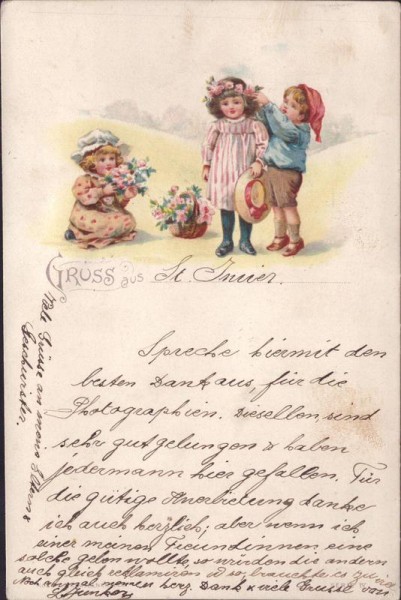 GRUSS aus St. Imier.
Spreche hiermit den
besten Dank aus, für die
Photographien. Dieselben sind
sehr gut gelungen & haben
jedermann hier gefallen. Für
die gütige Anerbietung danke
ich auch herzlich; aber wenn ich
einer meinen Freundinnen eine
solche geben wollte, so würden die andern
auch gleich reklamiren & so brauchte es zu viel
Noch einmal meinen herz. Dank & viele Grüsse von
Viele Grüsse an meine Eltern &
Geschwister.